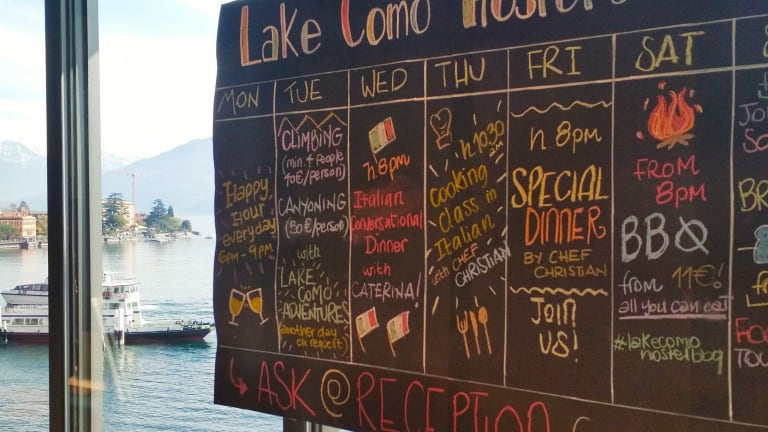 Lake Como Hostel
MON
TUE
WED
THU
FRI
SAT
Happy
Hour
everyday
6pm - 9pm
CLIMBING
(min. 4 people
40€/person)
CANYONING
(50€/person)
with
LAKE
COMO
ADVENTURES
(another day
on request)
h. 8pm
Italian
Conversational
Dinner
with
CATERINA!
h 10:30
Cooking
class in
Italian
with CHEF
CHRISTIAN
h. 8pm
SPECIAL
DINNER
BY CHEF
CHRISTIAN
JOIN
US!
FROM
8PM
BBQ
from 11€!
all you can eat
#lakecomo
hostelbbq
ASK @ RECEPTION